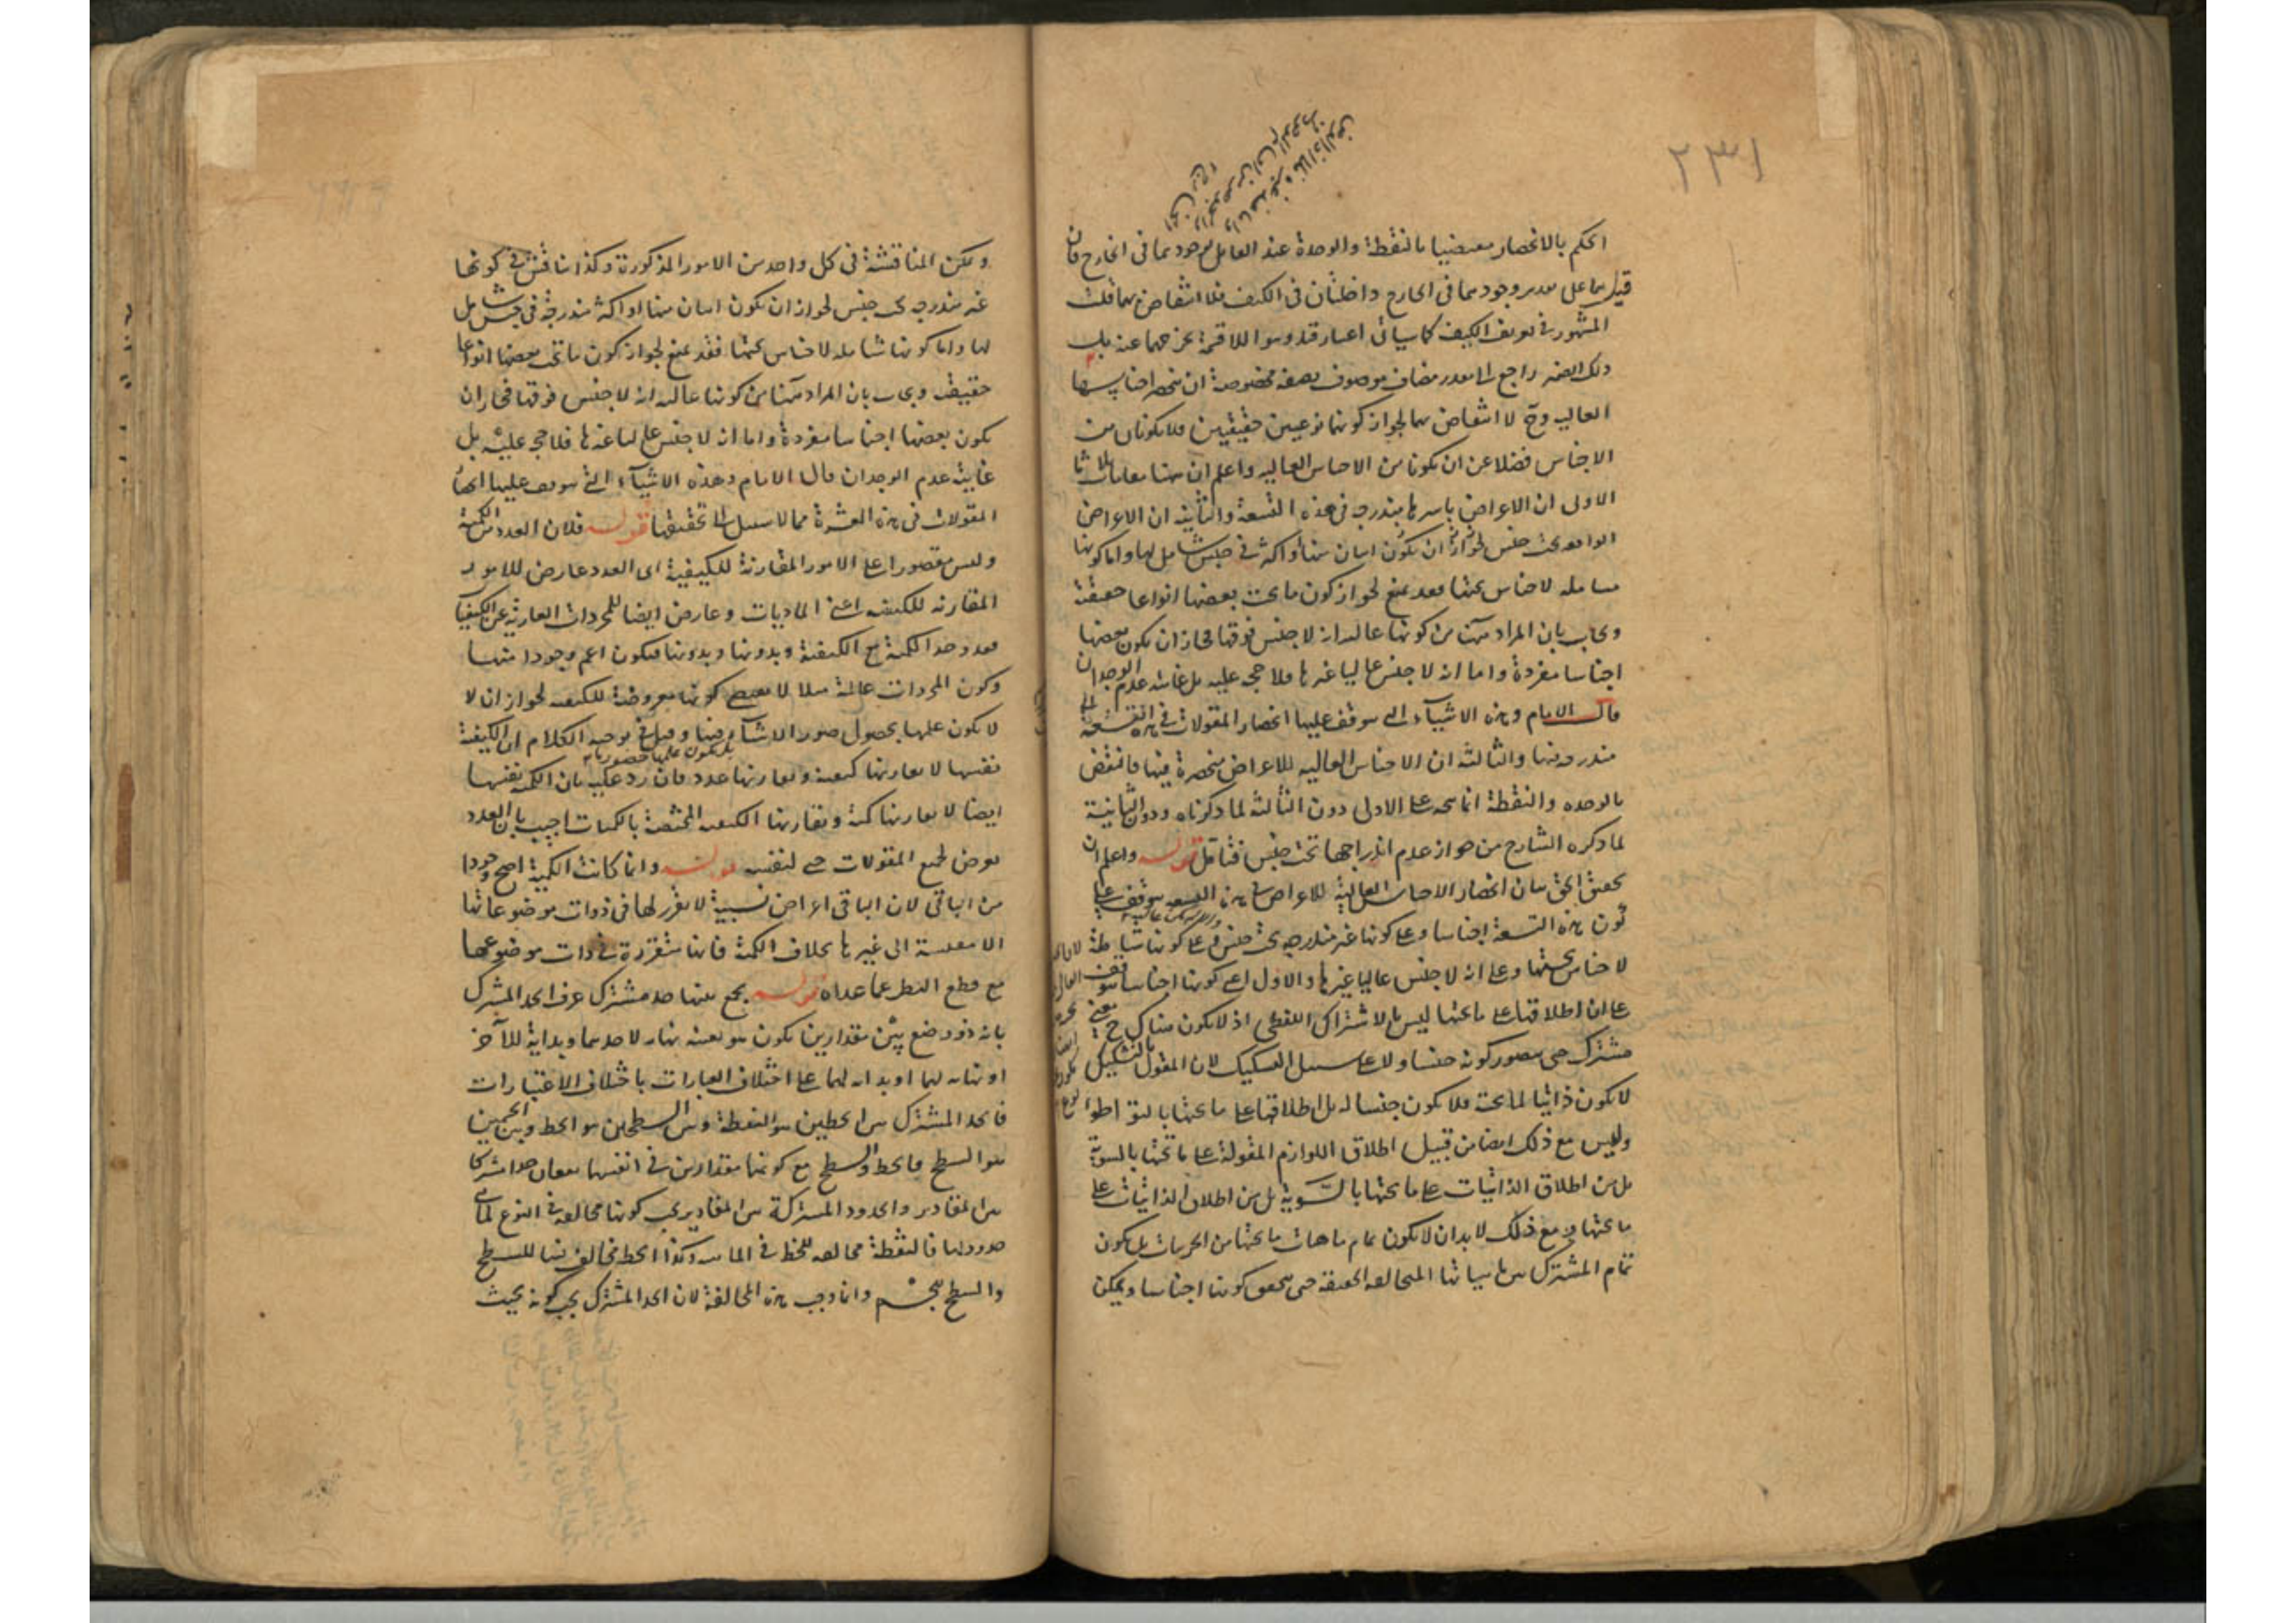 ٢٣١
الحكم بالانحصار معضيا بالنقطة والوحدة عند القايل بوجودهما فى الخارج فان
قيل هما على تقدير وجودهما فى الخارج داخلتان فى الكيف فلا انتقاض بهما قلت
المشهور فى تعريف الكيف كما سياتى اعتبار قيد وهو اللاقسمة يخرجهما عنه
ذلك الضمير راجع الى مقدر مضاف موصوف بصفة مخصوصة ان تنحصر اجناسها
العاليه وح لا انتقاض بهما لجواز كونهما نوعين حقيقيين فلا يكونان من
الاجناس فضلا عن ان يكونا من الاجناس العاليه واعلم ان ههنا مقامات ثلاثا
الاولى ان الاعراض باسرها مندرجه فى هذه التسعة والثانيه ان الاعراض
الواقعه تحت جنس لجواز ان يكون اثنان منها او اكثر فى جنس شامل لها واما كونها
شامله لاجناس تحتها فقد يمنع لجواز كون ما تحت بعضها انواعا حقيقة
ويجاب بان المراد ههنا من كونها عاليه ان لا جنس فوقها فجاز ان يكون بعضها
اجناسا مفردة واما ان لا جنس عاليا غيرها فلا حجه عليه بل غايته عدم الوجدان
قال الامام وهذه الاشياء التى يتوقف عليها انحصار المقولات فى هذه التسعة
مندرجه فيها والثالثه ان الاجناس العاليه للاعراض منحصرة فيها فانتقض
بالوحده والنقطة انما يتجه على الاولى دون الثالثة لما ذكرناه ودون الثانية
لما ذكره الشارح من جواز عدم اندراجها تحت جنس فتامل قوله واعلم ان
تحقيق الحق بيان انحصار الاجناس العالية للاعراض فى هذه التسعه يتوقف على
كون هذه التسعة اجناسا وعلى كونها غير مندرجه تحت جنس وعلى كونها شاملة
لاجناس تحتها وعلى ان لا جنس عاليا غيرها والاول اعنى كونها اجناسا يتوقف
على ان اطلاقها على ما تحتها ليس بالاشتراك اللفظى اذ لا يكون هناك ح معنى
مشترك حتى يتصور كونه جنسا ولا على سبيل التشكيك لان المقول بالتشكيك
لا يكون ذاتيا لما تحته فلا يكون جنسا له بل اطلاقها على ما تحتها بالتواطؤ
وليس مع ذلك ايضا من قبيل اطلاق اللوازم المقولة على ما تحتها بالسوية
بل من اطلاق الذاتيات على ما تحتها بالسوية بل من اطلاق الذاتيات على
ما تحتها ومع ذلك لابد ان لا يكون تمام ماهيات ما تحتها من الجزيات بل يكون
تمام المشترك بين ماهياتها المتخالفه الحقيقه حتى يتحقق كونها اجناسا ويمكن
ويمكن المناقشة فى كل واحد من الامور المذكورة وكذا يناقش فى كونها
غير مندرجه تحت جنس لجواز ان يكون اثنان منها او اكثر مندرجة فى جنس شامل
لها واما كونها شامله لاجناس تحتها فقد يمنع لجواز كون ما تحت بعضها انواعا
حقيقية ويجاب بان المراد ههنا من كونها عاليه ان لا جنس فوقها فجاز ان
يكون بعضها اجناسا مفردة واما ان لا جنس عاليا غيرها فلا حجه عليه بل
غايته عدم الوجدان قال الامام وهذه الاشياء التى يتوقف عليها انحصار
المقولات فى هذه العشرة مما لا سبيل الى تحقيقها قوله فلان العدد من الكمية
وليس مقصورا على الامور المقارنة للكيفية اى العدد عارض للامور
المقارنه للكيفيه اعنى الماديات وعارض ايضا للمجردات العارية عن الكيفيات
فقد وجد الكمية مع الكيفية وبدونها وبدونها فيكون اعم وجودا منها
وكون المجردات عالمة مثلا لا يقتضى كونها معروضة للكيفيه لجواز ان لا
لا يكون علمها بحصول صور الاشياء فيها وقيل فى توجيه الكلام ان الكيفية
بل يكون علمها حضوريا
نفسها لا يقارنها كيفيه ويقارنها عدد فان رد عليه بان الكمية نفسها
ايضا لا يقارنها كمية ويقارنها الكيفيه المختصة بالكميات اجيب بان العدد
يعرض لجميع المقولات حتى لنفسه قوله وانما كانت الكمية اصح وجودا
من الباقى لان الباقى اعراض نسبية لا تقرر لها فى ذوات موضوعاتها
الا مقيسة الى غيرها بخلاف الكمية فانها متقررة فى ذات موضوعها
مع قطع النظر عما عداه قوله يجمع بينها حد مشترك عرف الحد المشترك
بانه ذو وضع بين مقدارين يكون هو بعينه نهاية لاحدهما وبداية للآخر
او نهاية لهما او بداية لهما على اختلاف العبارات باختلاف الاعتبارات
فالحد المشترك بين الخطين هو النقطة وبين السطحين هو الخط وبين الجسمين
هو السطح فالخط والسطح مع كونهما مقدارين فى انفسهما يقعان حدا مشتركا
بين المقادير والحدود المشتركة بين المقادير يجب كونها مخالفه فى النوع لما هى
حدود لها فالنقطة مخالفه للخط فى الماهيه وكذا الخط مخالف للسطح
والسطح للجسم وانما وجب هذه المخالفة لان الحد المشترك يجب كونه بحيث